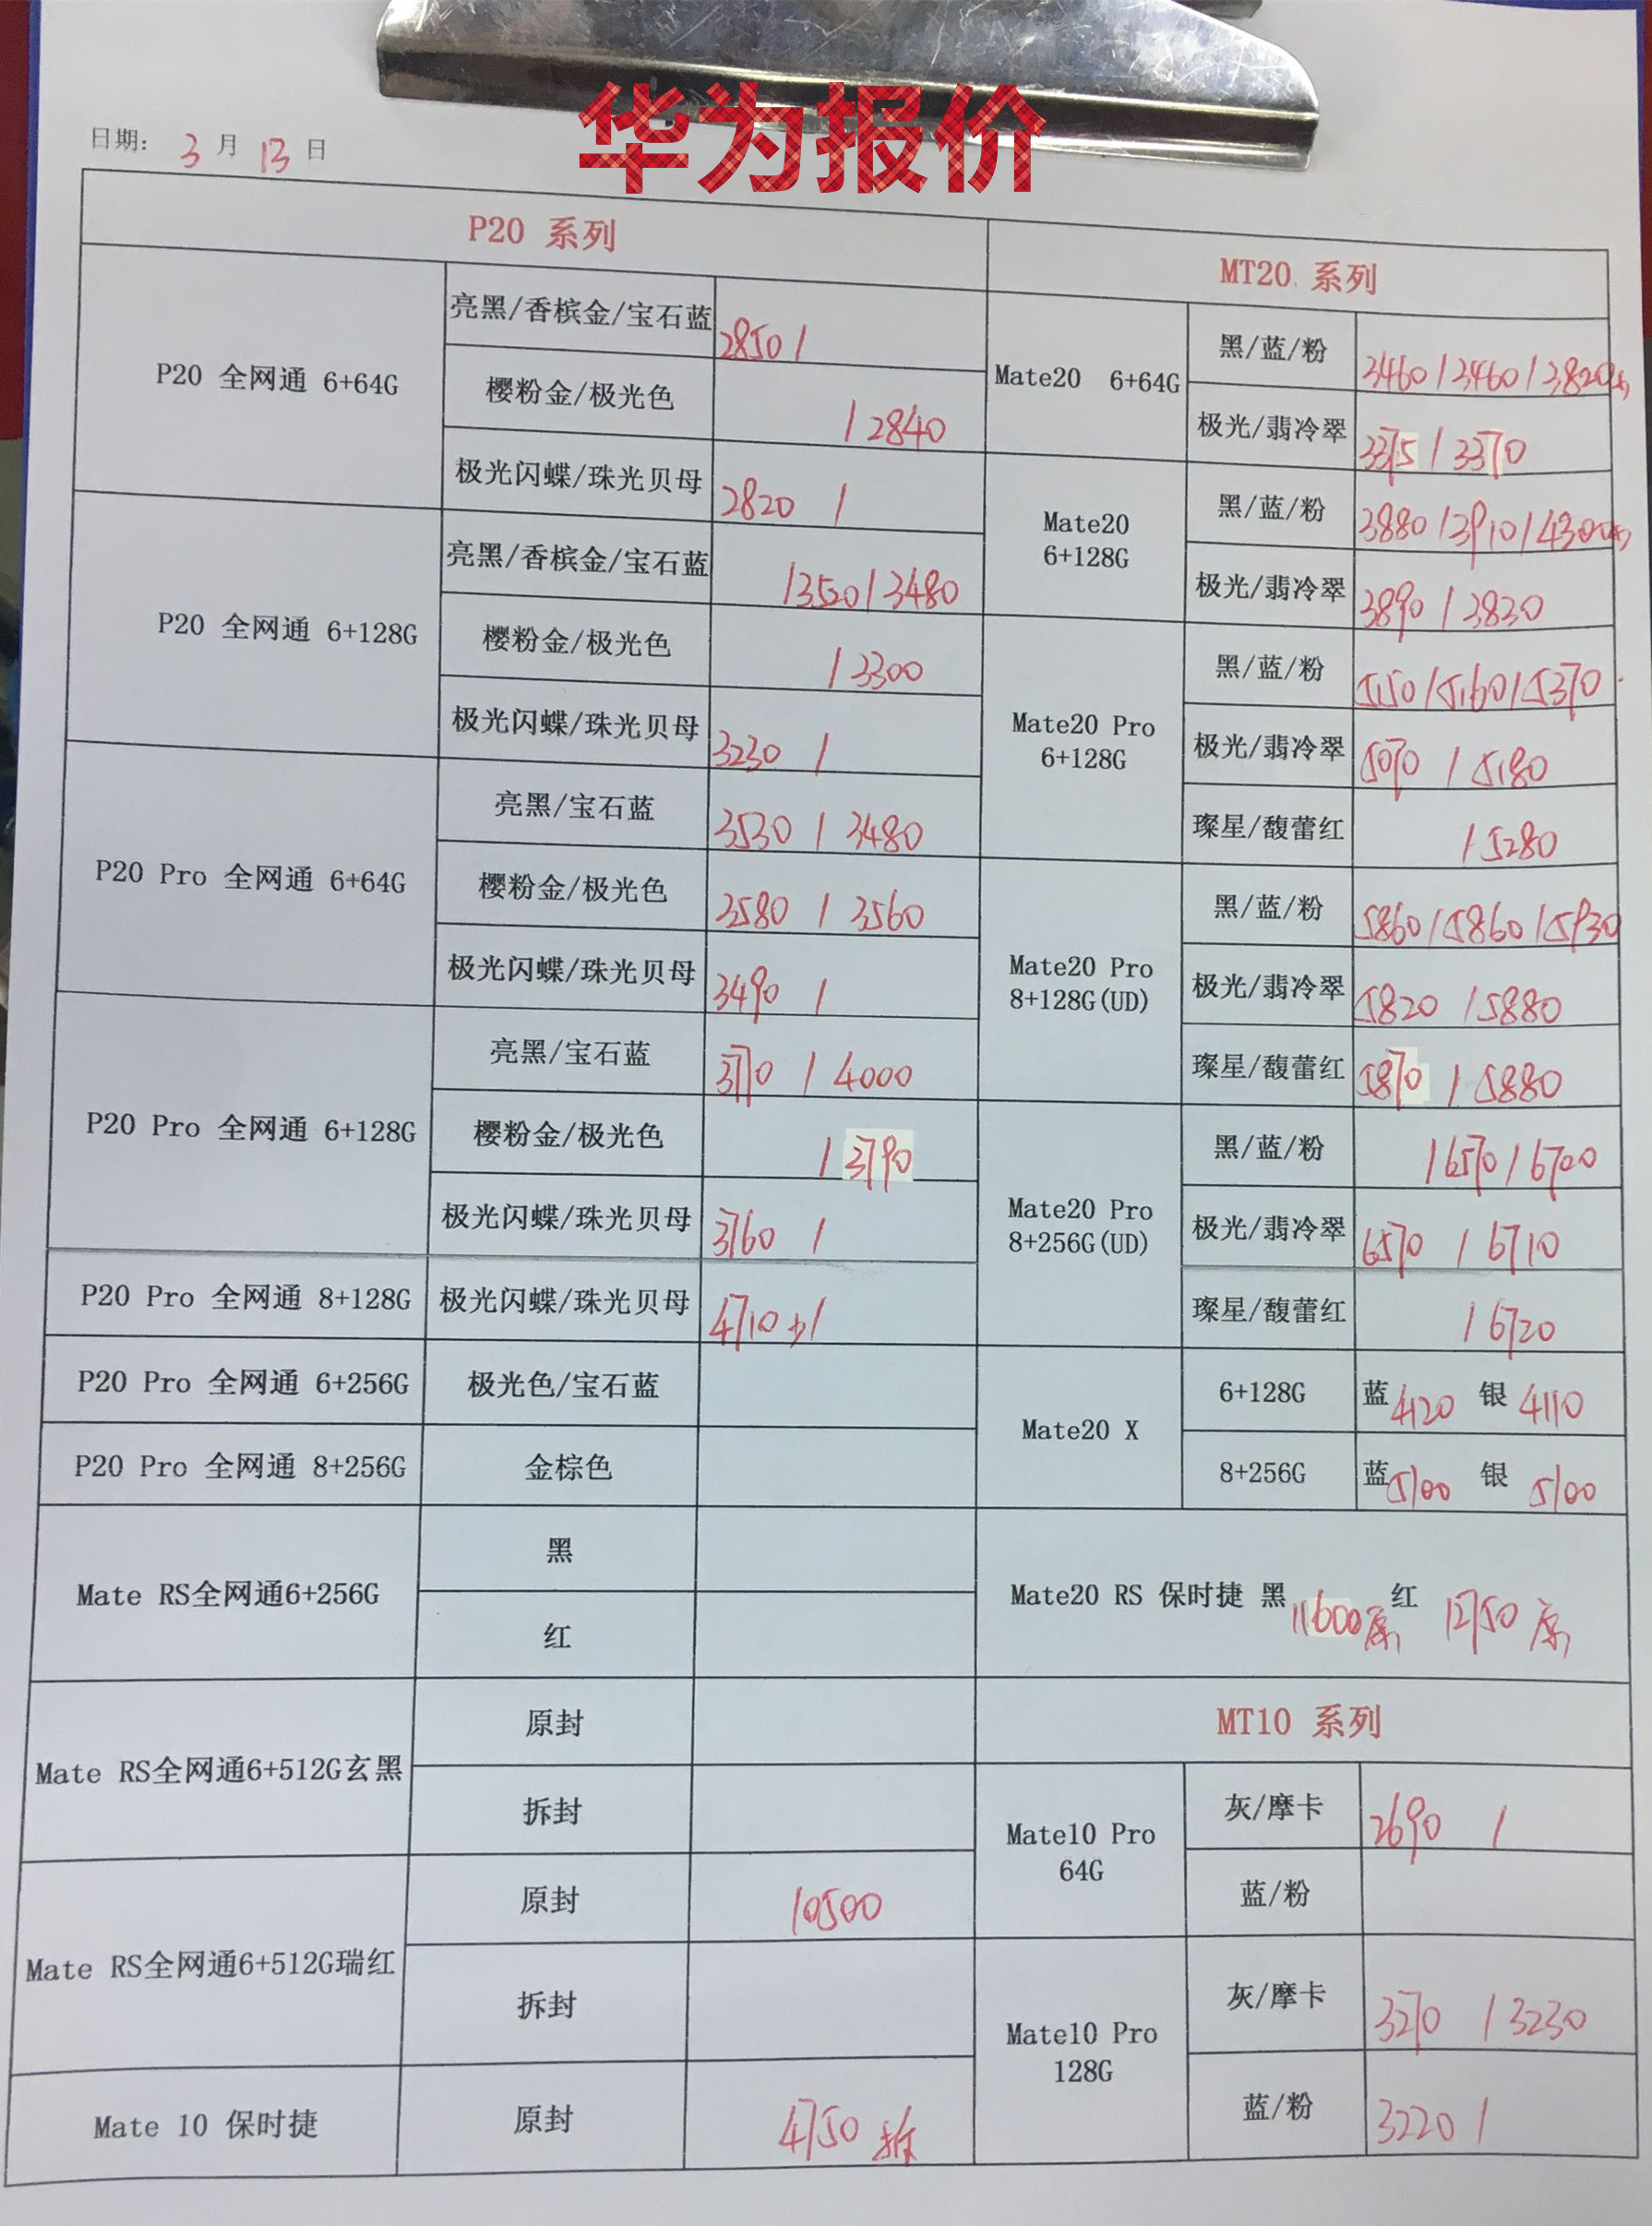 华为报价
日期: 3 月 13 日
P20 系列
P20 全网通 6+64G
亮黑/香槟金/宝石蓝 2850 /
樱粉金/极光色 / 2840
极光闪蝶/珠光贝母 2820 /
P20 全网通 6+128G
亮黑/香槟金/宝石蓝 /3520/3480
樱粉金/极光色 / 3300
极光闪蝶/珠光贝母 3230 /
P20 Pro 全网通 6+64G
亮黑/宝石蓝 3530 / 3480
樱粉金/极光色 3580 / 3560
极光闪蝶/珠光贝母 3490 /
P20 Pro 全网通 6+128G
亮黑/宝石蓝 3770 / 4000
樱粉金/极光色 / 3790
极光闪蝶/珠光贝母 3760 /
P20 Pro 全网通 8+128G 极光闪蝶/珠光贝母 4710 /
P20 Pro 全网通 6+256G 极光色/宝石蓝
P20 Pro 全网通 8+256G 金棕色
Mate RS全网通6+256G
黑
红
Mate RS全网通6+512G玄黑
原封
拆封
Mate RS全网通6+512G瑞红
原封 10500
拆封
Mate 10 保时捷 原封 4750 拆
MT20 系列
Mate20 6+64G
黑/蓝/粉 3460/3460/3820
极光/翡冷翠 3375 / 3370
Mate20
6+128G
黑/蓝/粉 3880/3910/4300
极光/翡冷翠 3890 / 3830
Mate20 Pro
6+128G
黑/蓝/粉 5150/5160/5370
极光/翡冷翠 5070 / 5180
璨星/馥蕾红 / 5280
Mate20 Pro
8+128G(UD)
黑/蓝/粉 5860/5860/5930
极光/翡冷翠 5820 / 5880
璨星/馥蕾红 5870 / 5880
Mate20 Pro
8+256G(UD)
黑/蓝/粉 /6570/6700
极光/翡冷翠 6570 / 6710
璨星/馥蕾红 / 6720
Mate20 X
6+128G 蓝 4120 银 4110
8+256G 蓝 5100 银 5100
Mate20 RS 保时捷 黑 11600原 红 12750 原
MT10 系列
Mate10 Pro
64G
灰/摩卡 2690 /
蓝/粉
Mate10 Pro
128G
灰/摩卡 3270 / 3230
蓝/粉 3220 /